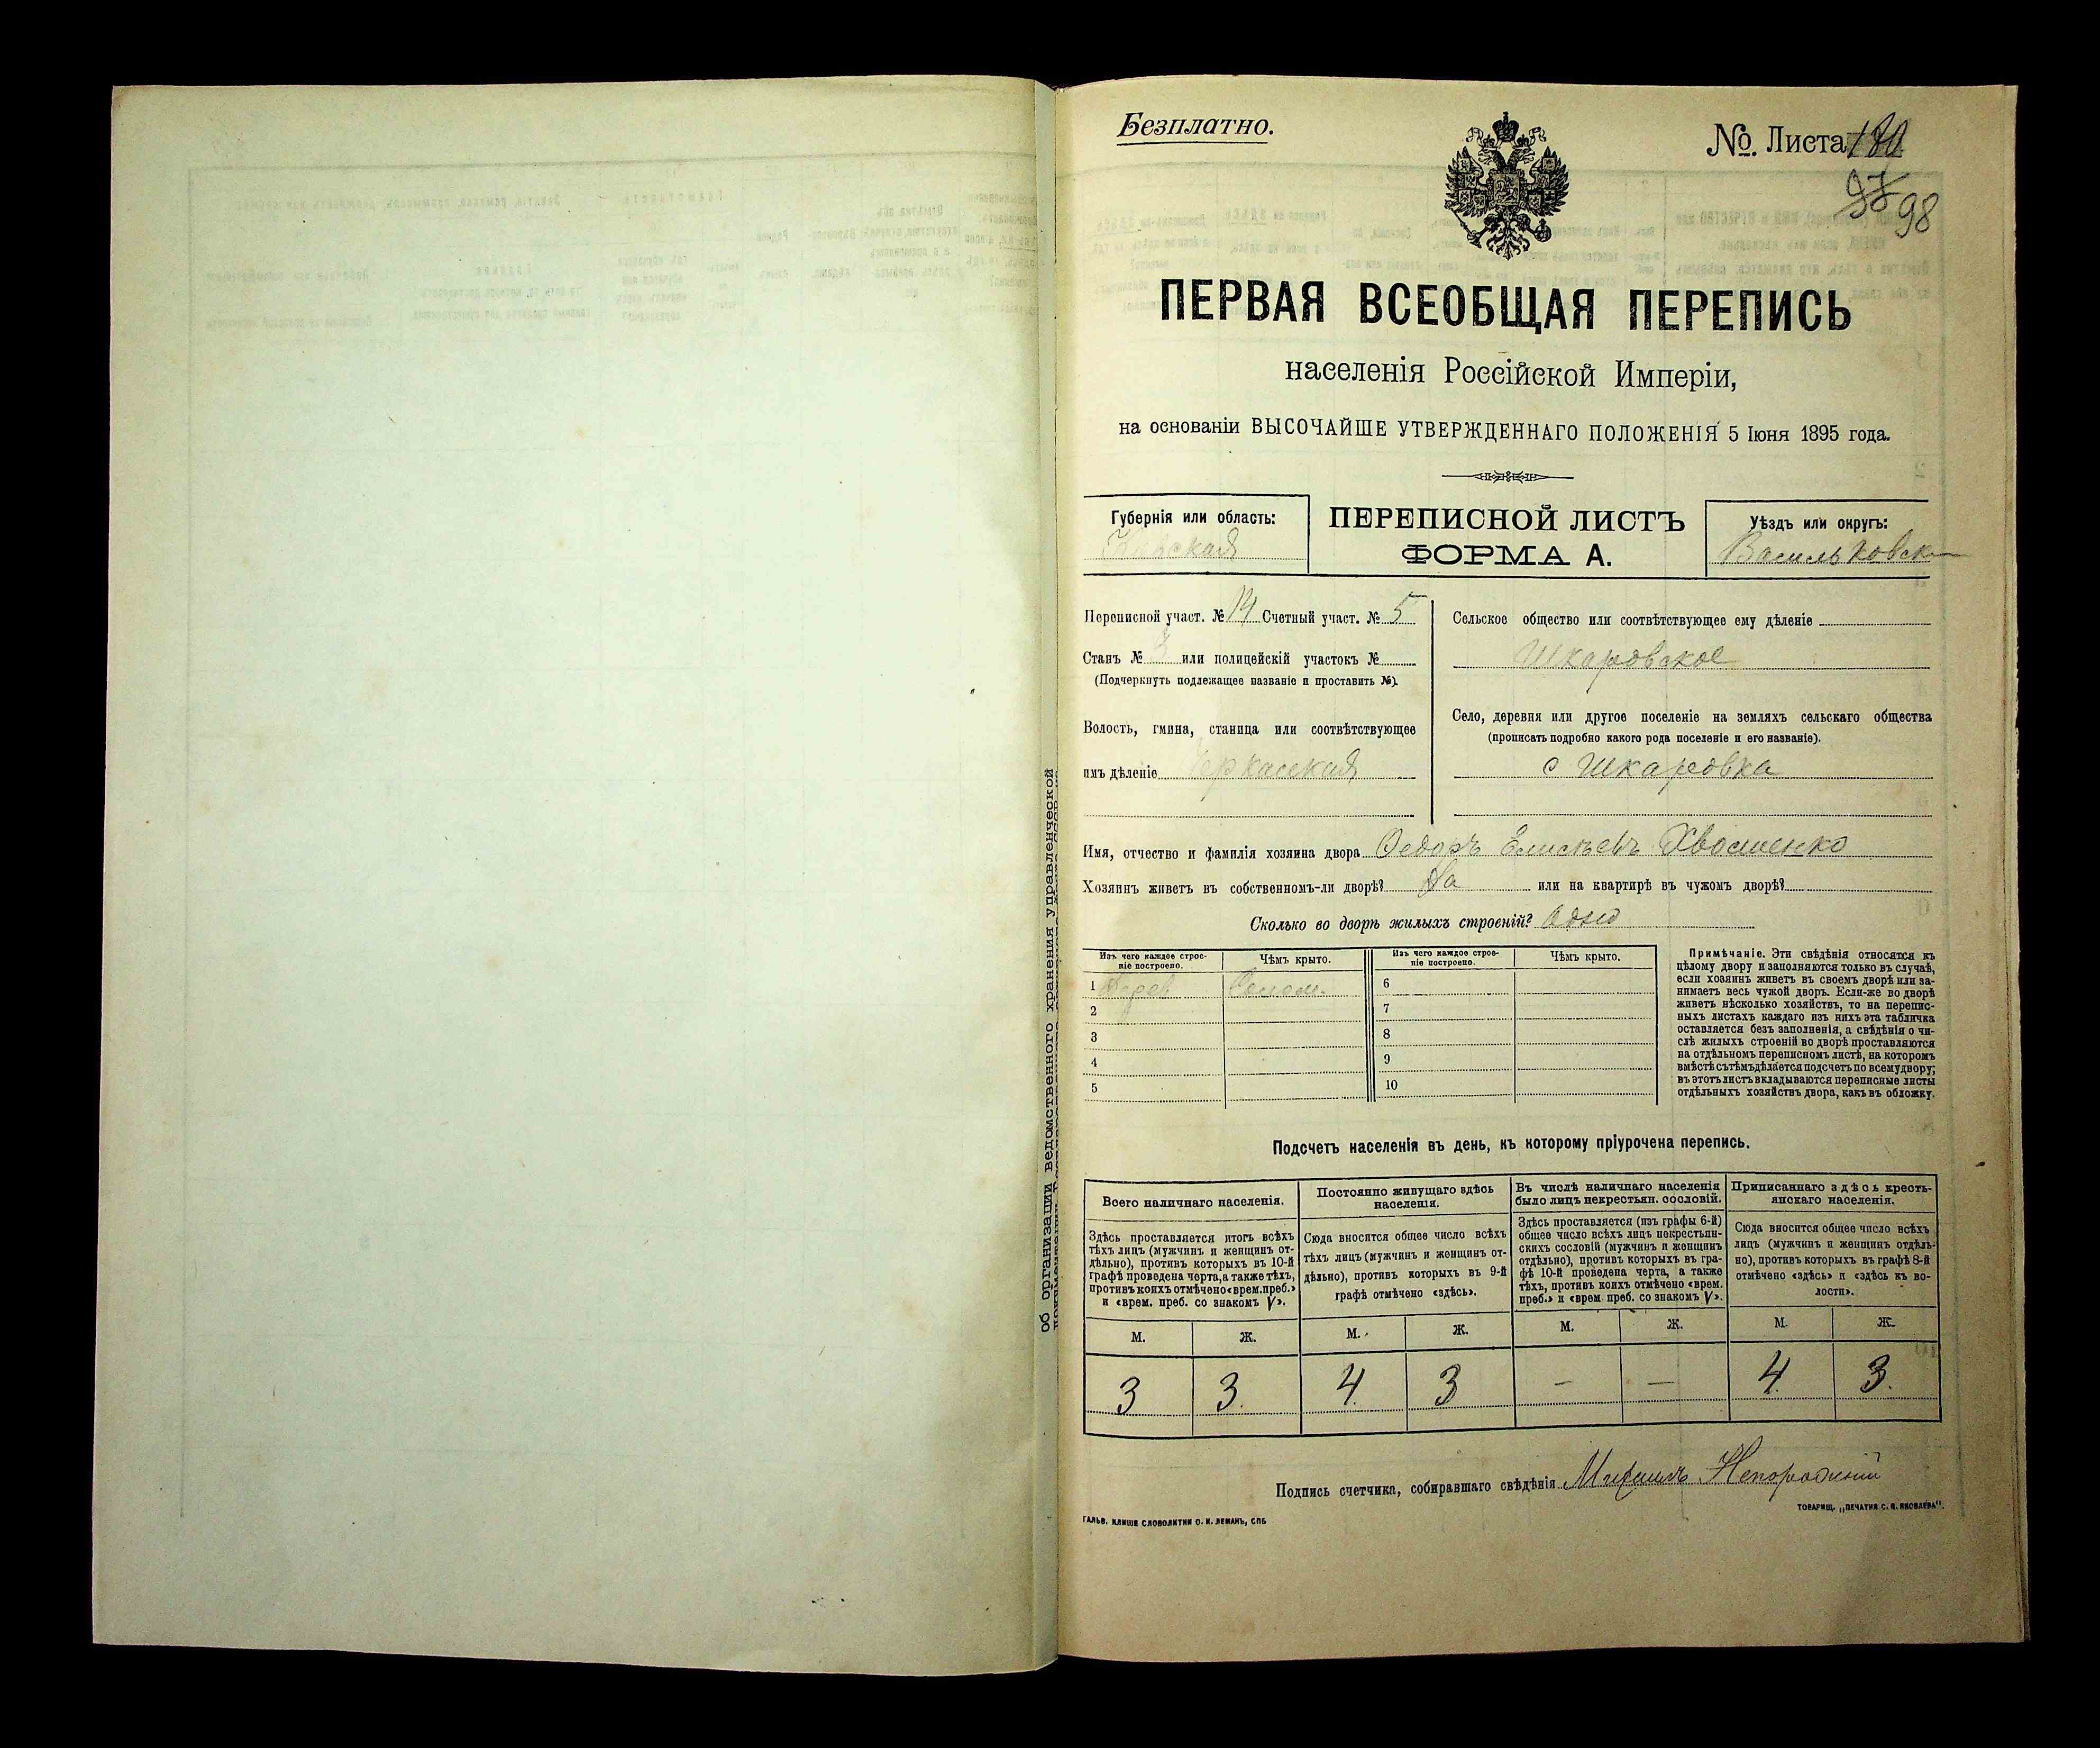 Безплатно.
№ Листа 180
97 98
ПЕРВАЯ ВСЕОБЩАЯ ПЕРЕПИСЬ
населенія Россійской Имперіи,
на основаніи ВЫСОЧАЙШЕ УТВЕРЖДЕННАГО ПОЛОЖЕНІЯ 5 Іюня 1895 года.
Губернія или область:
Кіевская
ПЕРЕПИСНОЙ ЛИСТЪ
ФОРМА А.
Уѣздъ или округъ:
Васильковск
Переписной участ. № 14 Счетный участ. № 5
Станъ № 3 или полицейскій участокъ №
(Подчеркнуть подлежащее названіе и проставить №).
Волость, гмина, станица или соотвѣтствующее
имъ дѣленіе Черкаская
Сельское общество или соотвѣтствующее ему дѣленіе
Шкаровское
Село, деревня или другое поселеніе на земляхъ сельскаго общества
(прописать подробно какого рода поселеніе и его названіе).
с Шкаровка
Имя, отчество и фамилія хозяина двора Федоръ Елисѣевъ Хвошенко
Хозяинъ живетъ въ собственномъ-ли дворѣ? Да или на квартирѣ въ чужомъ дворѣ?
Сколько во дворѣ жилыхъ строеній? Одно
Изъ чего каждое строеніе построено. Чѣмъ крыто. Изъ чего каждое строеніе построено. Чѣмъ крыто.
1 Дерев Солом. 6
2 7
3 8
4 9
5 10
Примѣчаніе. Эти свѣдѣнія относятся къ
цѣлому двору и заполняются только въ случаѣ,
если хозяинъ живетъ въ своемъ дворѣ или за-
нимаетъ весь чужой дворъ. Если-же во дворѣ
живетъ нѣсколько хозяйствъ, то на перепис-
ныхъ листахъ каждаго изъ нихъ эта табличка
оставляется безъ заполненія, а свѣдѣнія о чи-
слѣ жилыхъ строеній во дворѣ проставляются
на отдѣльномъ переписномъ листѣ, на которомъ
вмѣстѣ съ тѣмъ дѣлается подсчетъ по всему двору;
въ этотъ листъ вкладываются переписные листы
отдѣльныхъ хозяйствъ двора, какъ въ обложку.
Подсчетъ населенія въ день, къ которому пріурочена перепись.
Всего наличнаго населенія.
Здѣсь проставляется итогъ всѣхъ
тѣхъ лицъ (мужчинъ и женщинъ от-
дѣльно), противъ которыхъ въ 10-й
графѣ проведена черта, а также тѣхъ,
противъ коихъ отмѣчено «врем. преб.»
и «врем. преб. со знакомъ V».
Постоянно живущаго здѣсь
населенія.
Сюда вносится общее число всѣхъ
тѣхъ лицъ (мужчинъ и женщинъ от-
дѣльно), противъ которыхъ въ 9-й
графѣ отмѣчено «здѣсь».
Въ числѣ наличнаго населенія
было лицъ некрестьян. сословій.
Здѣсь проставляется (изъ графы 6-й)
общее число всѣхъ лицъ некрестьян-
скихъ сословій (мужчинъ и женщинъ
отдѣльно), противъ которыхъ въ гра-
фѣ 10-й проведена черта, а также
тѣхъ, противъ коихъ отмѣчено «врем.
преб.» и «врем преб. со знакомъ V».
Приписаннаго здѣсь кресть-
янскаго населенія.
Сюда вносится общее число всѣхъ
лицъ (мужчинъ и женщинъ отдѣль-
но), противъ которыхъ въ графѣ 8-й
отмѣчено «здѣсь» и «здѣсь къ во-
лости».
М. Ж. М. Ж. М. Ж. М. Ж.
3 3. 4. 3 — — 4. 3.
Подпись счетчика, собиравшаго свѣдѣнія Михаилъ Непорожній
ГАЛЬВ. КЛИШЕ СЛОВОЛИТНИ О. И. ЛЕМАНЪ, СПБ
ТОВАРИЩ. „ПЕЧАТНЯ С. П. ЯКОВЛЕВА".
об организации ведомственного хранения управленческой